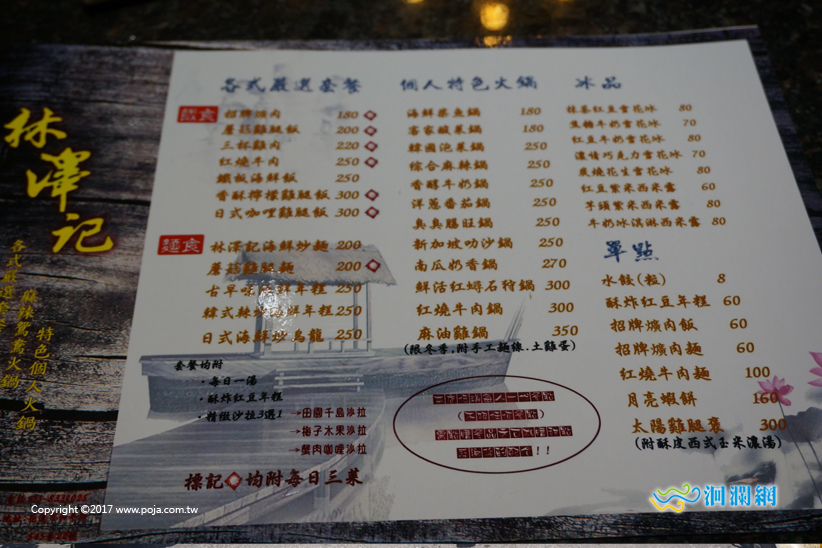 林澤記
各式嚴選套餐
麻辣鴛鴦火鍋
特色個人火鍋
各式嚴選套餐
飯食
招牌爌肉 180
蘑菇雞腿飯 200
三杯雞肉 220
紅燒牛肉 250
鐵板海鮮飯 250
香酥檸檬雞腿飯 300
日式咖哩雞腿飯 300
麵食
林澤記海鮮炒麵 200
蘑菇雞腿麵 200
古早味海鮮年糕 250
韓式辣炒海鮮年糕 250
日式海鮮炒烏龍 250
套餐均附
·每日一湯
·酥炸紅豆年糕
·精緻沙拉3選1→田園千島沙拉
→梅子木果沙拉
→蟹肉咖哩沙拉
標記 均附每日三菜
個人特色火鍋
海鮮柴魚鍋 180
客家酸菜鍋 180
韓國泡菜鍋 250
綜合麻辣鍋 250
香醇牛奶鍋 250
洋蔥番茄鍋 250
臭臭腸旺鍋 250
新加坡叻沙鍋 250
南瓜奶香鍋 270
鮮活紅蟳石狩鍋 300
紅燒牛肉鍋 300
麻油雞鍋 350
(限冬季,附手工麵線.土雞蛋)
冰品
抹茶紅豆雪花冰 80
焦糖牛奶雪花冰 70
紅豆牛奶雪花冰 80
濃情巧克力雪花冰 70
炭燒花生雪花冰 80
紅豆紫米西米露 60
芋頭紫米西米露 80
牛奶冰淇淋西米露 80
單點
水餃(粒) 8
酥炸紅豆年糕 60
招牌爌肉飯 60
招牌爌肉麵 60
紅燒牛肉麵 100
月亮蝦餅 160
太陽雞腿裹 300
(附酥皮西式玉米濃湯)
洄瀾網
Copyright ©2017 www.poja.com.tw